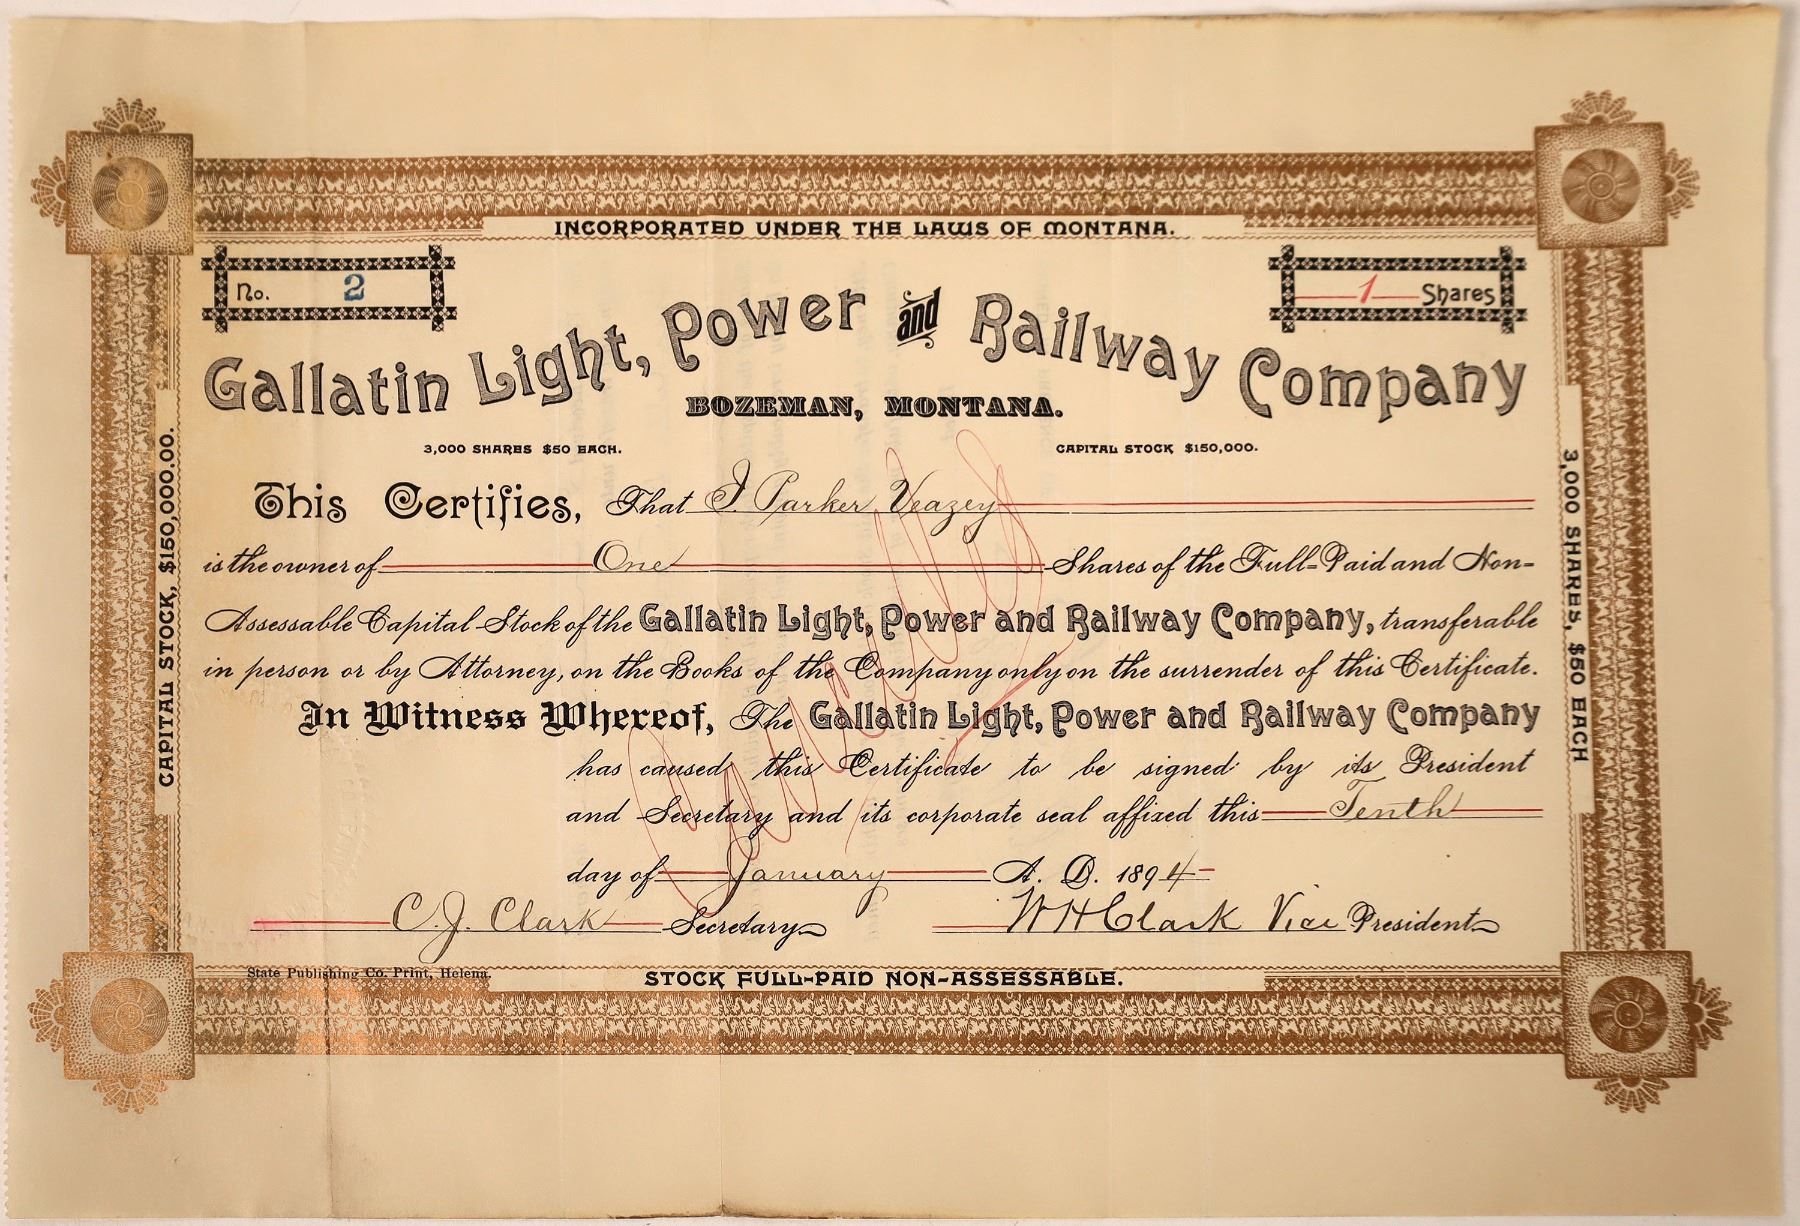 INCORPORATED UNDER THE LAWS OF MONTANA.
No. 2
1 Shares
Gallatin Light, Power and Railway Company
BOZEMAN, MONTANA.
3,000 SHARES $50 EACH.
CAPITAL STOCK $150,000.
This Certifies, That I. Parker Veazey
is the owner of One Shares of the Full-Paid and Non-
Assessable Capital Stock of the Gallatin Light, Power and Railway Company, transferable
in person or by Attorney, on the Books of the Company only on the surrender of this Certificate.
In Witness Whereof, The Gallatin Light, Power and Railway Company
has caused this Certificate to be signed by its President
and Secretary and its corporate seal affixed this Tenth
day of January A. D. 1894
C. J. Clark Secretary
W H Clark Vice President
Cancelled
State Publishing Co. Print, Helena.
STOCK FULL-PAID NON-ASSESSABLE.
CAPITAL STOCK, $150,000.00.
3,000 SHARES, $50 EACH